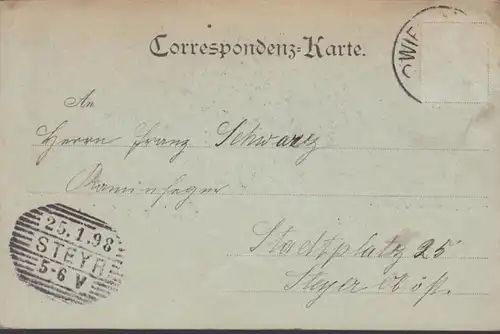 Correspondenz-Karte.
WIE
An
Herrn Franz Schwarz
Kaminfeger
Stadtplatz 25
Steyer Ob öst.
25.1.98
STEYR
5-6 V